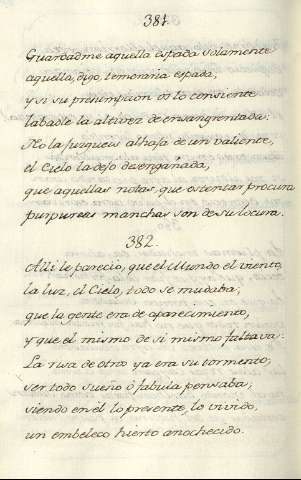 381.
Guardadme aquella espada solamente
aquella, digo, temeraria espada,
y si su presumpcion os lo consiente
labadle la altivez de ensangrentada:
No la juzgueis alhaja de un valiente,
el Cielo la dejo desengañada,
que aquellas notas, que ostentar procura
purpureas manchas son de su locura.
382.
Alli le parecio, que el Mundo el viento,
la luz, el Cielo, todo se mudaba;
que la gente era de aparecimiento,
y que el mismo de si mismo faltava:
La risa de otro ya era su tormento;
ser todo sueño ò fabula pensaba;
siendo en èl lo presente, lo vivido,
un embeleco hierto anochecido.